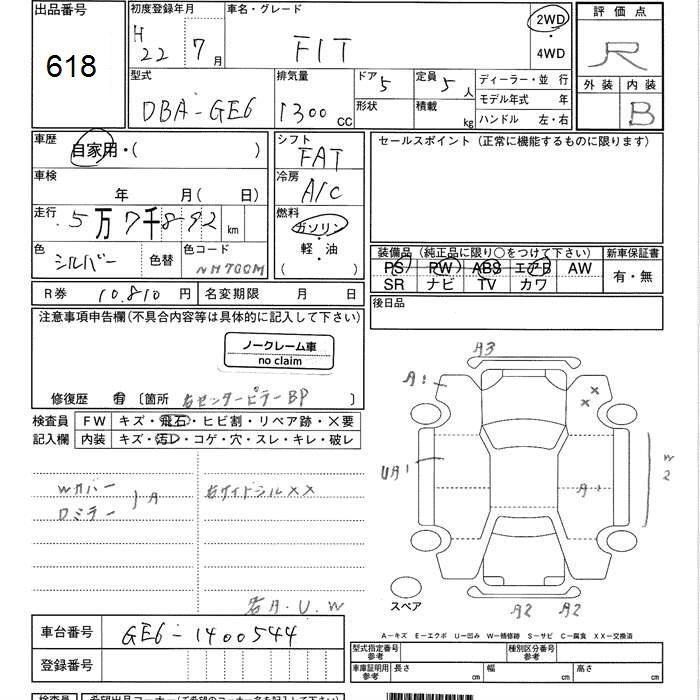 出品番号
618
初度登録年月
H 22 7月
車名・グレード
FIT
2WD
・
4WD
評価点
R
外装 内装
B
型式
DBA-GE6
排気量
1300 CC
ドア 5
形状
定員 5 人
積載 kg
ディーラー・並行
モデル年式 年
ハンドル 左・右
車歴
自家用・( )
車検
年 月(日)
走行
5万7千892 km
色
シルバー
色替
色コード
NH700M
R券 10.810円
名変期限 月 日
シフト
FAT
冷房
A/C
燃料
ガソリン
・
軽・油
( )
セールスポイント (正常に機能するものに限ります)
装備品(純正品に限り○をつけて下さい)
PS PW ABS エアB AW
SR ナビ TV カワ
新車保証書
有・無
後日品
注意事項申告欄(不具合内容等は具体的に記入して下さい)
ノークレーム車
no claim
修復歴 有 〔箇所 右センターピラーBP
検査員
記入欄
FW キズ・飛石・ヒビ割・リペア跡・×要
内装 キズ・汚レ・コゲ・穴・スレ・キレ・破レ
Wカバー
Dミラー
A
右サイドシルXX
A3
A1
UA1
×
×
A
W
2
スペア
A2 A2
A-キズ E-エクボ U-凹み W-補修跡 S-サビ C-腐食 XX-交換済
車台番号 GE6-1400544
登録番号
型式指定番号
参考
種別区分番号
参考
車庫証明用
参考
長さ cm
幅 cm
高さ cm
検査員
希望出品コーナー(ご希望のコーナー名を記入して下さい)